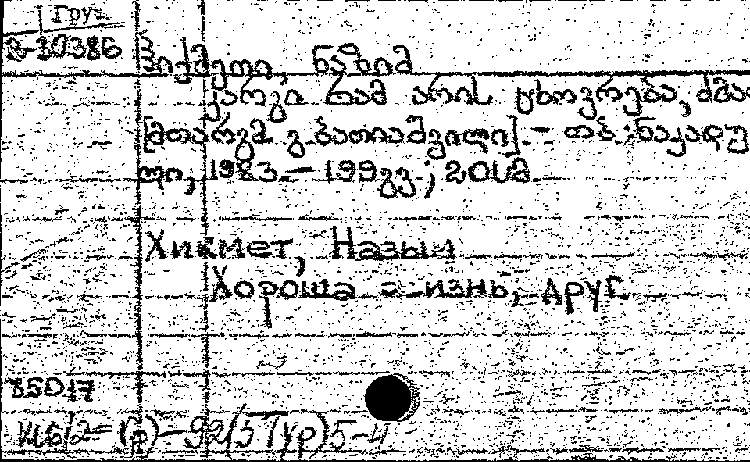 Груз
2-20386
ჰიქმეთი, ნაზიმ
კარგი რამ არის ცხოვრება, ძმაო
[მთარგმ. გ. ბათიაშვილი]. - თბ.: ნაკადუ
ლი, 1983. - 199 გვ.; 20 სმ.
Хикмет, Назым
Хороша жизнь, друг.
85017
И(5Тур)5-4